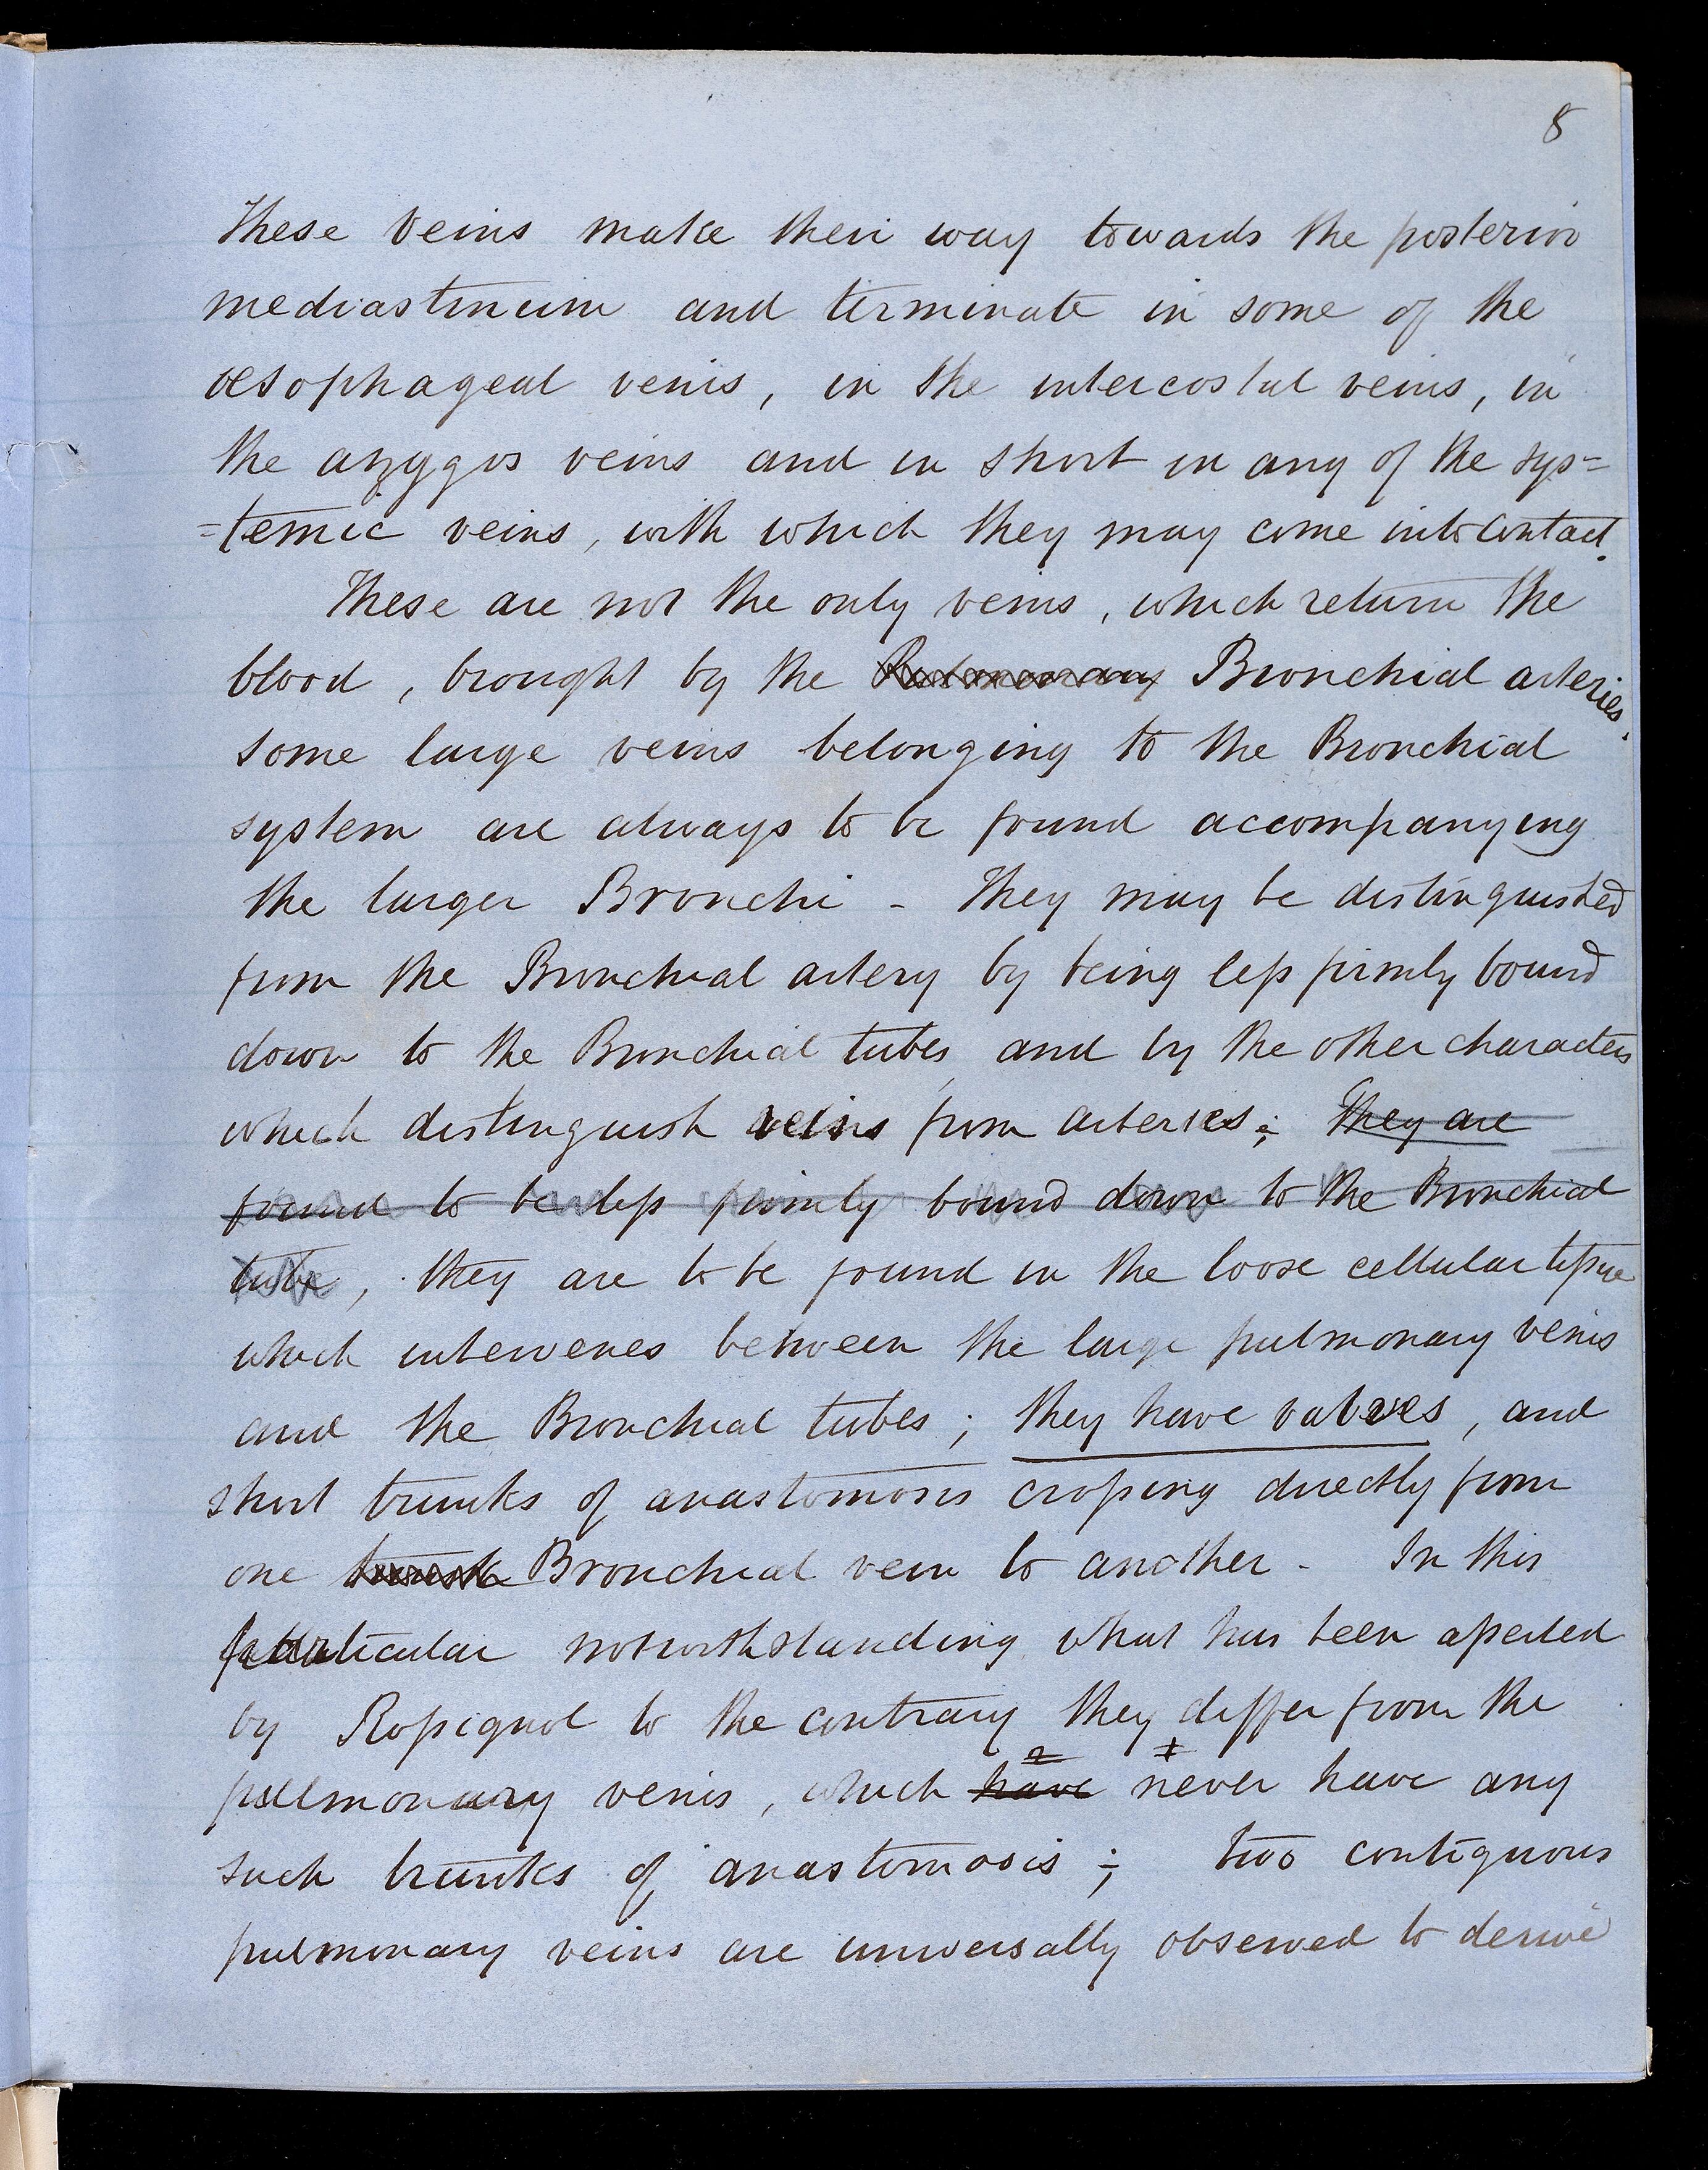 8
These veins make their way towards the posterior
mediastinum and terminate in some of the
œsophageal veins, in the intercostal veins, in
the azygos veins and in short in any of the sys=
=temic veins, with which they may come into contact.
These are not the only veins, which return the
blood, brought by the Pulmonary Bronchial arteries.
some large veins belonging to the Bronchial
system are always to be found accompanying
the larger Bronchi - They may be distinguished
from the Bronchial artery by being less firmly bound
down to the Bronchial tubes, and by the other characters
which distinguish veins from arteries; They are
found to be less firmly bound down to the Bronchial
tube, they are to be found in the loose cellular tissue
which intervenes between the large pulmonary veins
and the Bronchial tubes; they have valves, and
short trunks of anastomosis crossing directly from
one trunk Bronchial vein to another - In this
particular notwithstanding what has been asserted
by Rossignol to the contrary they differ from the
pulmonary veins, which have never have any
such trunks of anastomosis; two contiguous
pulmonary veins are universally observed to derive